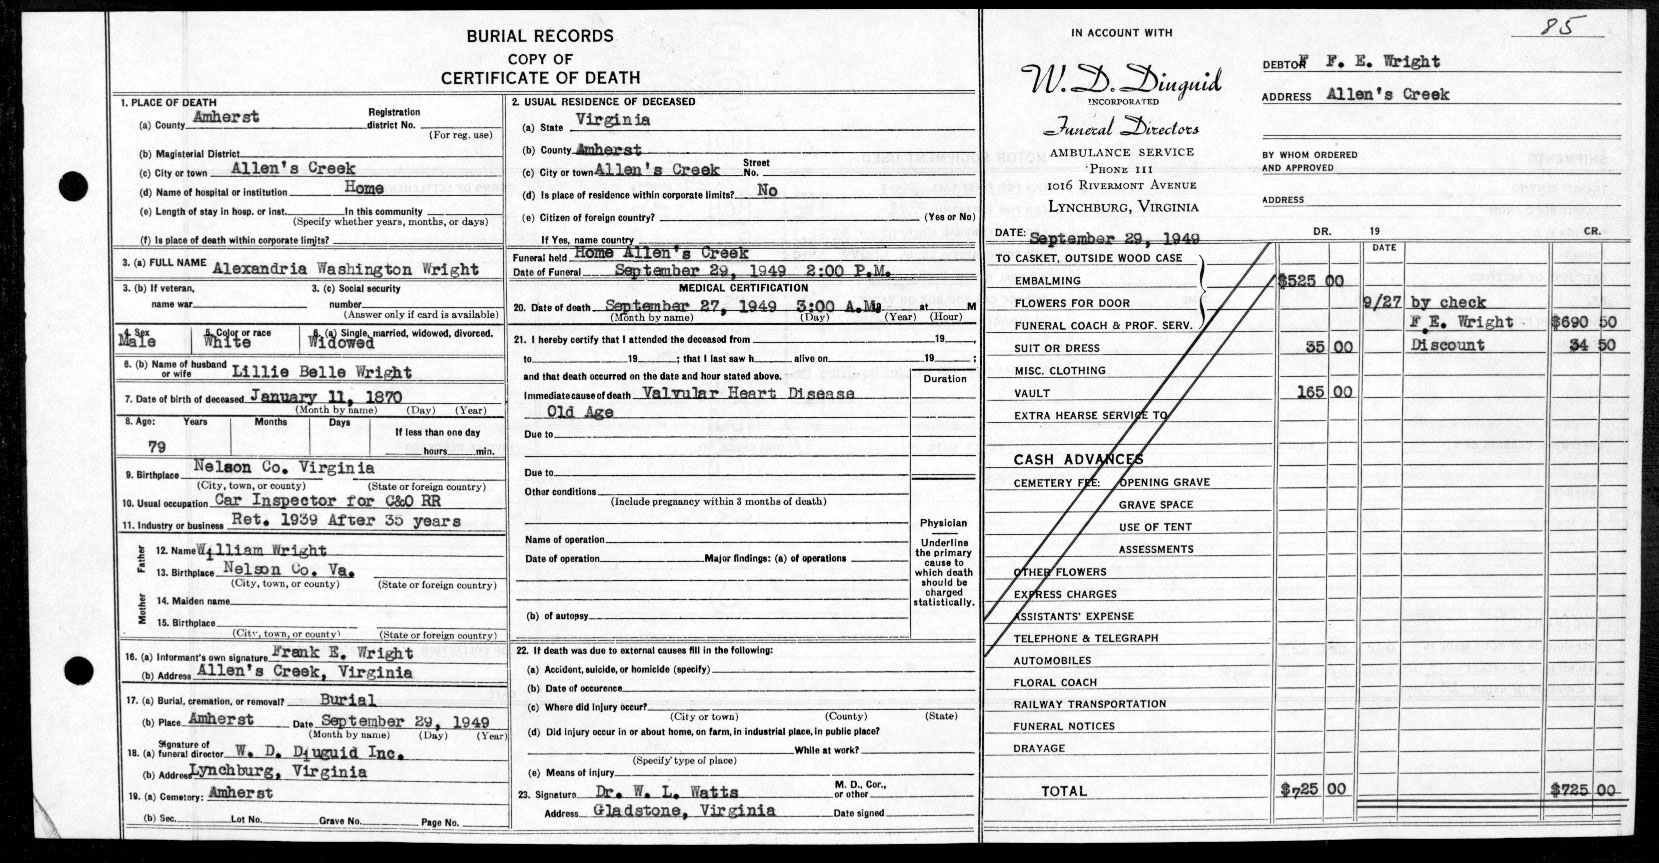 BURIAL RECORDS
COPY OF
CERTIFICATE OF DEATH
1. PLACE OF DEATH
(a) County Amherst Registration district No.
(For reg. use)
(b) Magisterial District
(c) City or town Allen's Creek
(d) Name of hospital or institution Home
(e) Length of stay in hosp. or inst. In this community
(Specify whether years, months, or days)
(f) Is place of death within corporate limits?
3. (a) FULL NAME Alexandria Washington Wright
3. (b) If veteran, 3. (c) Social security
name war number
(Answer only if card is available)
4. Sex 5. Color or race 6. (a) Single, married, widowed, divorced.
Male White Widowed
6. (b) Name of husband or wife Lillie Belle Wright
7. Date of birth of deceased January 11, 1870
(Month by name) (Day) (Year)
8. Age: Years Months Days If less than one day
79 hours min.
9. Birthplace Nelson Co. Virginia
(City, town, or county) (State or foreign country)
10. Usual occupation Car Inspector for C&O RR
11. Industry or business Ret. 1939 After 35 years
Father
12. Name William Wright
13. Birthplace Nelson Co. Va.
(City, town, or county) (State or foreign country)
Mother
14. Maiden name
15. Birthplace
(City, town, or county) (State or foreign country)
16. (a) Informant's own signature Frank E. Wright
(b) Address Allen's Creek, Virginia
17. (a) Burial, cremation, or removal? Burial
(b) Place Amherst Date September 29, 1949
(Month by name) (Day) (Year)
18. (a) Signature of funeral director W. D. Diuguid Inc.
(b) Address Lynchburg, Virginia
19. (a) Cemetery: Amherst
(b) Sec. Lot No. Grave No. Page No.
2. USUAL RESIDENCE OF DECEASED
(a) State Virginia
(b) County Amherst
(c) City or town Allen's Creek Street No.
(d) Is place of residence within corporate limits? No
(e) Citizen of foreign country? (Yes or No)
If Yes, name country
Funeral held Home Allen's Creek
Date of Funeral September 29, 1949 2:00 P.M.
MEDICAL CERTIFICATION
20. Date of death September 27, 1949 3:00 A.M. at M
(Month by name) (Day) (Year) (Hour)
21. I hereby certify that I attended the deceased from 19 ,
to 19 ; that I last saw h alive on 19 ;
and that death occurred on the date and hour stated above. Duration
Immediate cause of death Valvular Heart Disease
Old Age
Due to
Due to
Other conditions
(Include pregnancy within 3 months of death)
Name of operation
Date of operation Major findings: (a) of operations
(b) of autopsy
Physician
Underline
the primary
cause to
which death
should be
charged
statistically.
22. If death was due to external causes fill in the following:
(a) Accident, suicide, or homicide (specify)
(b) Date of occurence
(c) Where did injury occur?
(City or town) (County) (State)
(d) Did injury occur in or about home, on farm, in industrial place, in public place?
While at work?
(Specify type of place)
(e) Means of injury
23. Signature Dr. W. L. Watts M. D., Cor., or other
Address Gladstone, Virginia Date signed
85
IN ACCOUNT WITH
W. D. Diuguid
INCORPORATED
Funeral Directors
AMBULANCE SERVICE
PHONE 111
1016 RIVERMONT AVENUE
LYNCHBURG, VIRGINIA
DEBTOR F. E. Wright
ADDRESS Allen's Creek
BY WHOM ORDERED
AND APPROVED
ADDRESS
DATE: September 29, 1949 DR. 19 CR.
DATE
TO CASKET, OUTSIDE WOOD CASE
EMBALMING $525 00
FLOWERS FOR DOOR 9/27 by check
FUNERAL COACH & PROF. SERV. F. E. Wright $690 50
SUIT OR DRESS 35 00 Discount 34 50
MISC. CLOTHING
VAULT 165 00
EXTRA HEARSE SERVICE TO
CASH ADVANCES
CEMETERY FEE: OPENING GRAVE
GRAVE SPACE
USE OF TENT
ASSESSMENTS
OTHER FLOWERS
EXPRESS CHARGES
ASSISTANTS' EXPENSE
TELEPHONE & TELEGRAPH
AUTOMOBILES
FLORAL COACH
RAILWAY TRANSPORTATION
FUNERAL NOTICES
DRAYAGE
TOTAL $725 00 $725 00